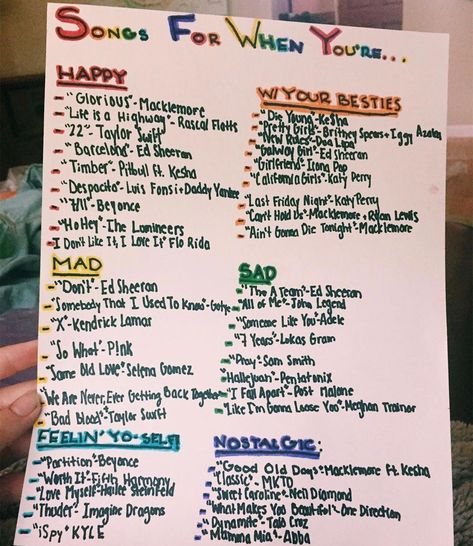 SONGS FOR WHEN YOU'RE...
HAPPY
- "Glorious"-Macklemore
- "Life is a Highway"- Rascal Flatts
- "22"- Taylor Swift
- "Barcelona"- Ed Sheeran
- "Timber"- Pitbull ft. Kesha
- "Despacito"- Luis Fonsi + Daddy Yankee
- "7/11"- Beyonce
- "Ho Hey"-The Lumineers
- I Don't Like It, I Love It" Flo Rida
W/ YOUR BESTIES
- "Die Young"-Ke$ha
- "Pretty Girls"- Britney Spears + Iggy Azalea
- "New Rules"-Dua Lipa
- "Galway Girl"-Ed Sheeran
- "Girlfriend"- Icona Pop
- "California Girls"- Katy Perry
- "Last Friday Night"-Katy Perry
- "Can't Hold Us"- Macklemore + Ryan Lewis
- "Ain't Gonna Die Tonight"-Macklemore
MAD
- "Don't"-Ed Sheeran
- "Somebody That I Used To Know"-Gotye
- "X"-Kendrick Lamar
- "So What"-P!nk
- "Same Old Love" Selena Gomez
- "We Are Never, Ever Getting Back Together"
- "Bad Blood"-Taylor Swift
SAD
- "The A Team"-Ed Sheeran
- "All of Me"-John Legend
- "Someone Like You"-Adele
- "7 Years"-Lukas Gram
- "Pray"-Sam Smith
- "Hallejuah"-Pentatonix
- "I Fall Apart"-Post Malone
- "Like I'm Gonna Loose You"-Meghan Trainor
FEELIN' YO-SELF!
- "Partition"-Beyonce
- "Worth It"-Fifth Harmony
- "Love Myself"-Hailee Steinfeld
- "Thuder"- Imagine Dragons
- "iSpy" KYLE
NOSTALGIC:
- "Good Old Days"-Macklemore ft. Kesha
- "Classic"- MKTO
- "Sweet Caroline"-Neil Diamond
- "What Makes You Beautiful"-One Direction
- "Dynamite"- Taio Cruz
- "Mamma Mia"-Abba